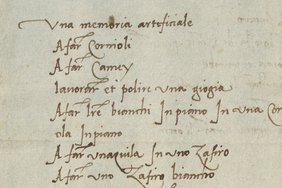 Una memoria arteficiale
A far Cornioli
A far Camey
lauorar et polire una giogia
A far tre bianchi In piano In una Cor
ola In piano
A far unaquila In uno Zafiro
A far uno Zafiro biancho